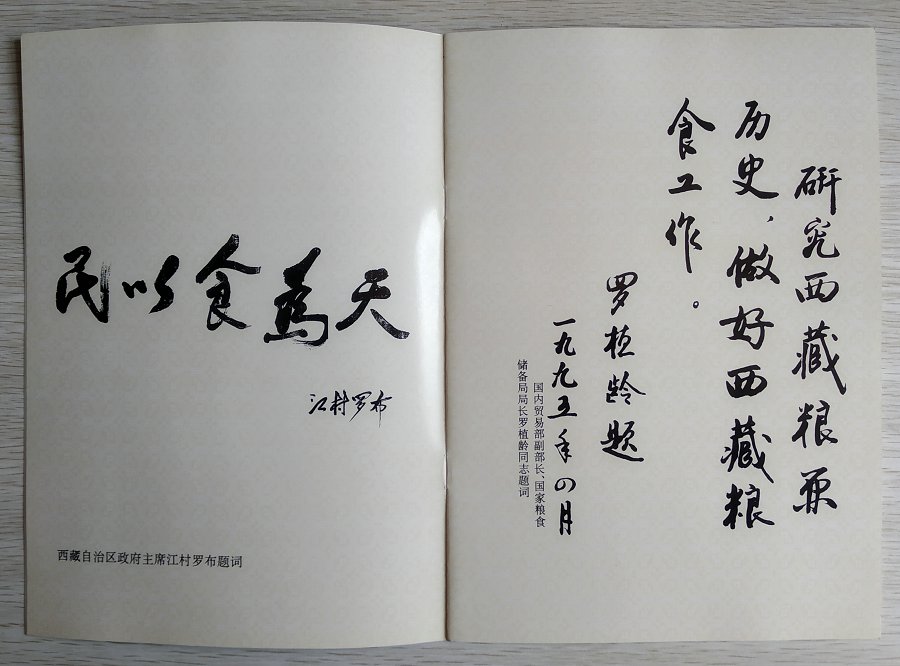 民以食為天
江村罗布
西藏自治区政府主席江村罗布题词
研究西藏粮票
历史、做好西藏粮
食工作。
罗植龄题
一九九五年四月
国内贸易部副部长、国家粮食
储备局局长罗植龄同志题词